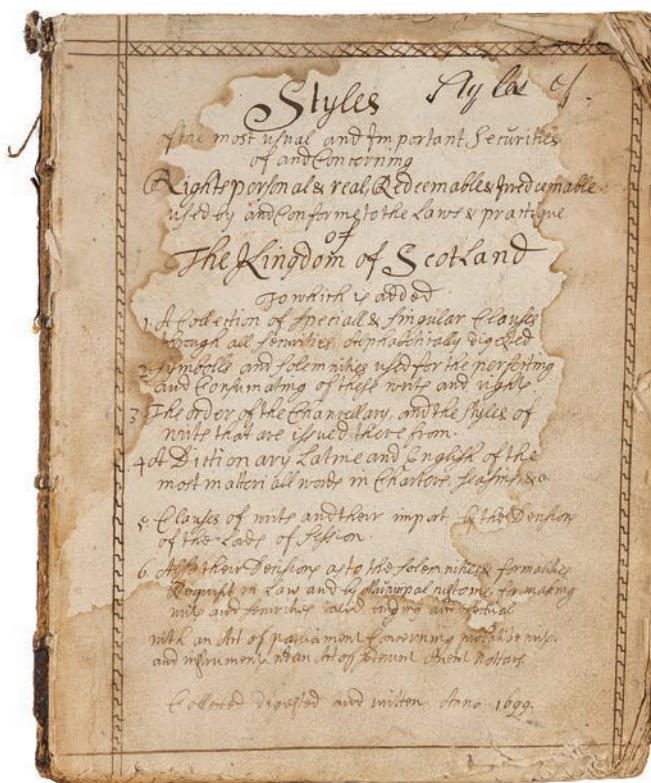 Styles Styles of
of the most usual and Important Securities
of and Concerning
Rights personal & real, Redeemable & Irredeemable
used by and Conforme to the Laws & practique
of
The Kingdom of Scotland
To which is added
1. A Collection of speciall & singular Clauses
through all securities Alphabetically digested
2. Symbolls and solemnities used for the perfecting
and Consumating of these writs and rights
3 The order of the Chancellary, and the styles of
writs that are issued there from.
4 A Dictionary Latine and English of the
most materiall words in Chartors seasins &c
5 Clauses of writs and their import, by the Decisions
of the Lords of Session
6. their Decisions as to the solemnities & formalities
Requisit in Law and by Municipal customs, for making
writs and securities valid and
with an Act of parliament Concerning writs
and instruments Act of Notars
Collected digested and written Anno 1699.